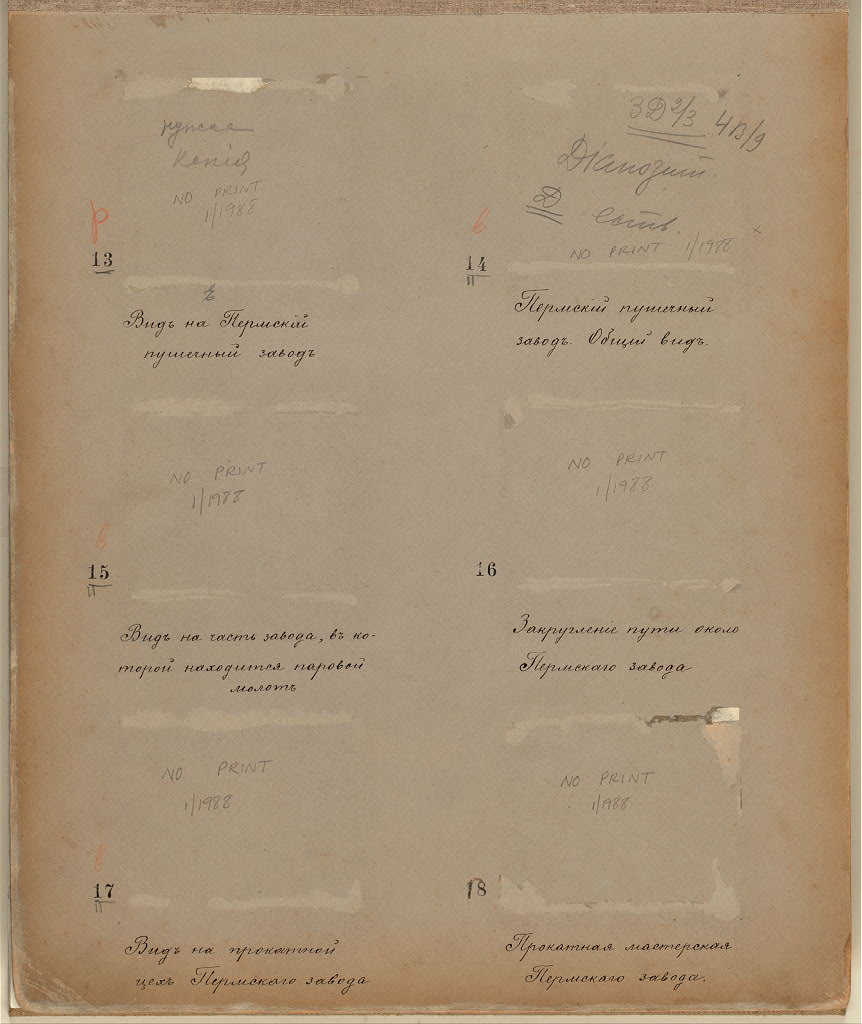 нужна
копія
NO PRINT
1/1988
р
13
Видъ на Пермскій
пушечный заводъ
3D 2/3 4В/9
D
NO PRINT 1/1988
в
14
п
Пермскій пушечный
заводъ. Общій видъ.
NO PRINT
1/1988
в
15
п
Видъ на часть завода, въ ко-
торой находится паровой
молотъ
NO PRINT
1/1988
16
Закругленіе пути около
Пермскаго завода
NO PRINT
1/1988
в
17
п
Видъ на прокатной
цехъ Пермскаго завода
NO PRINT
1/1988
18
Прокатная мастерская
Пермскаго завода.